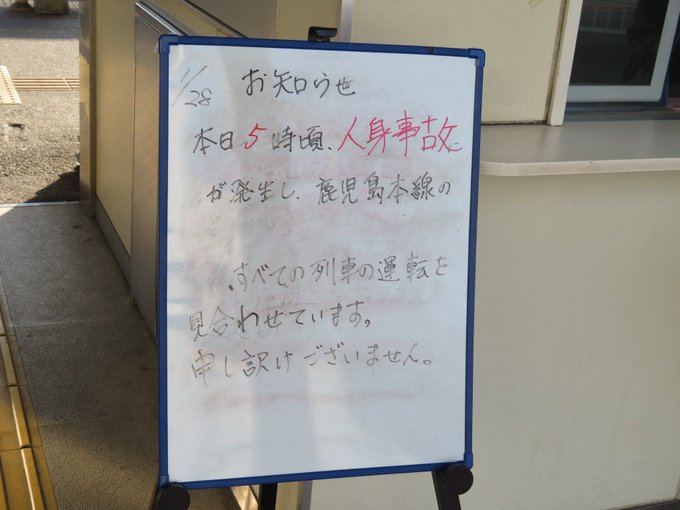 1/28 お知らせ
本日5時頃、人身事故
が発生し、鹿児島本線の
すべての列車の運転を
見合わせています。
申し訳けございません。